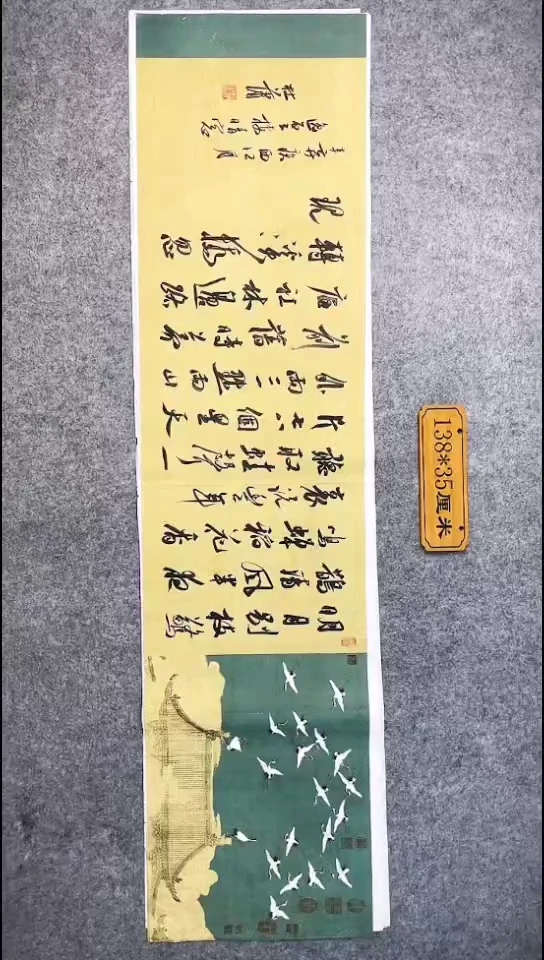 明月别枝驚
鵲清風半夜
鳴蟬稻花香
裏説豐年
聽取蛙聲一
片七八個星天
外兩三點雨山
前舊時茅
店社林邊路
轉溪橋忽
現
辛棄疾西江月
138*35厘米